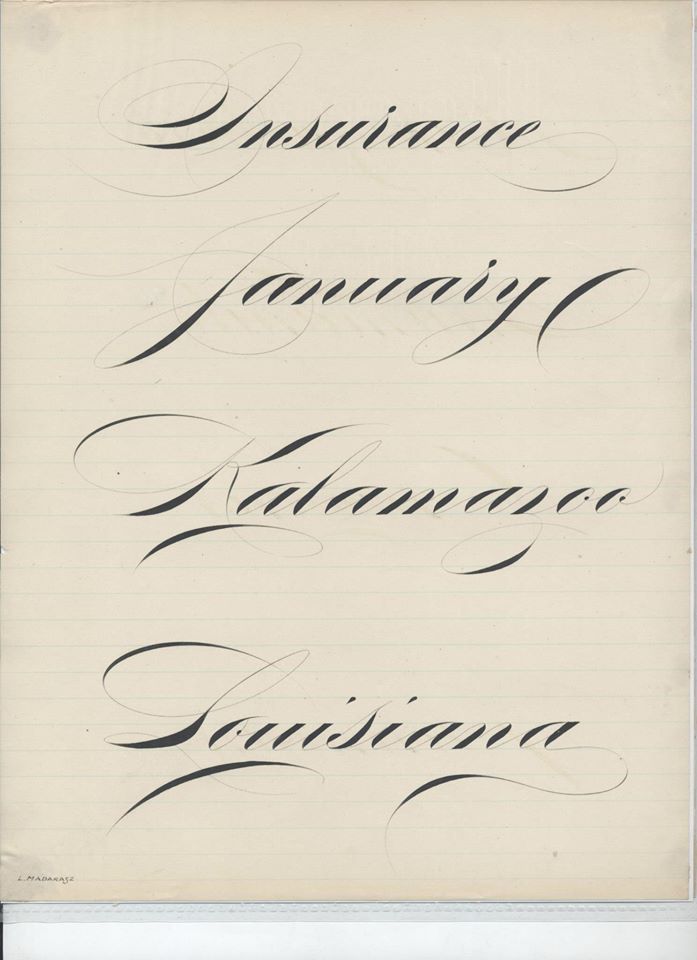 Insurance
January
Kalamazoo
Louisiana
L. MADARASZ